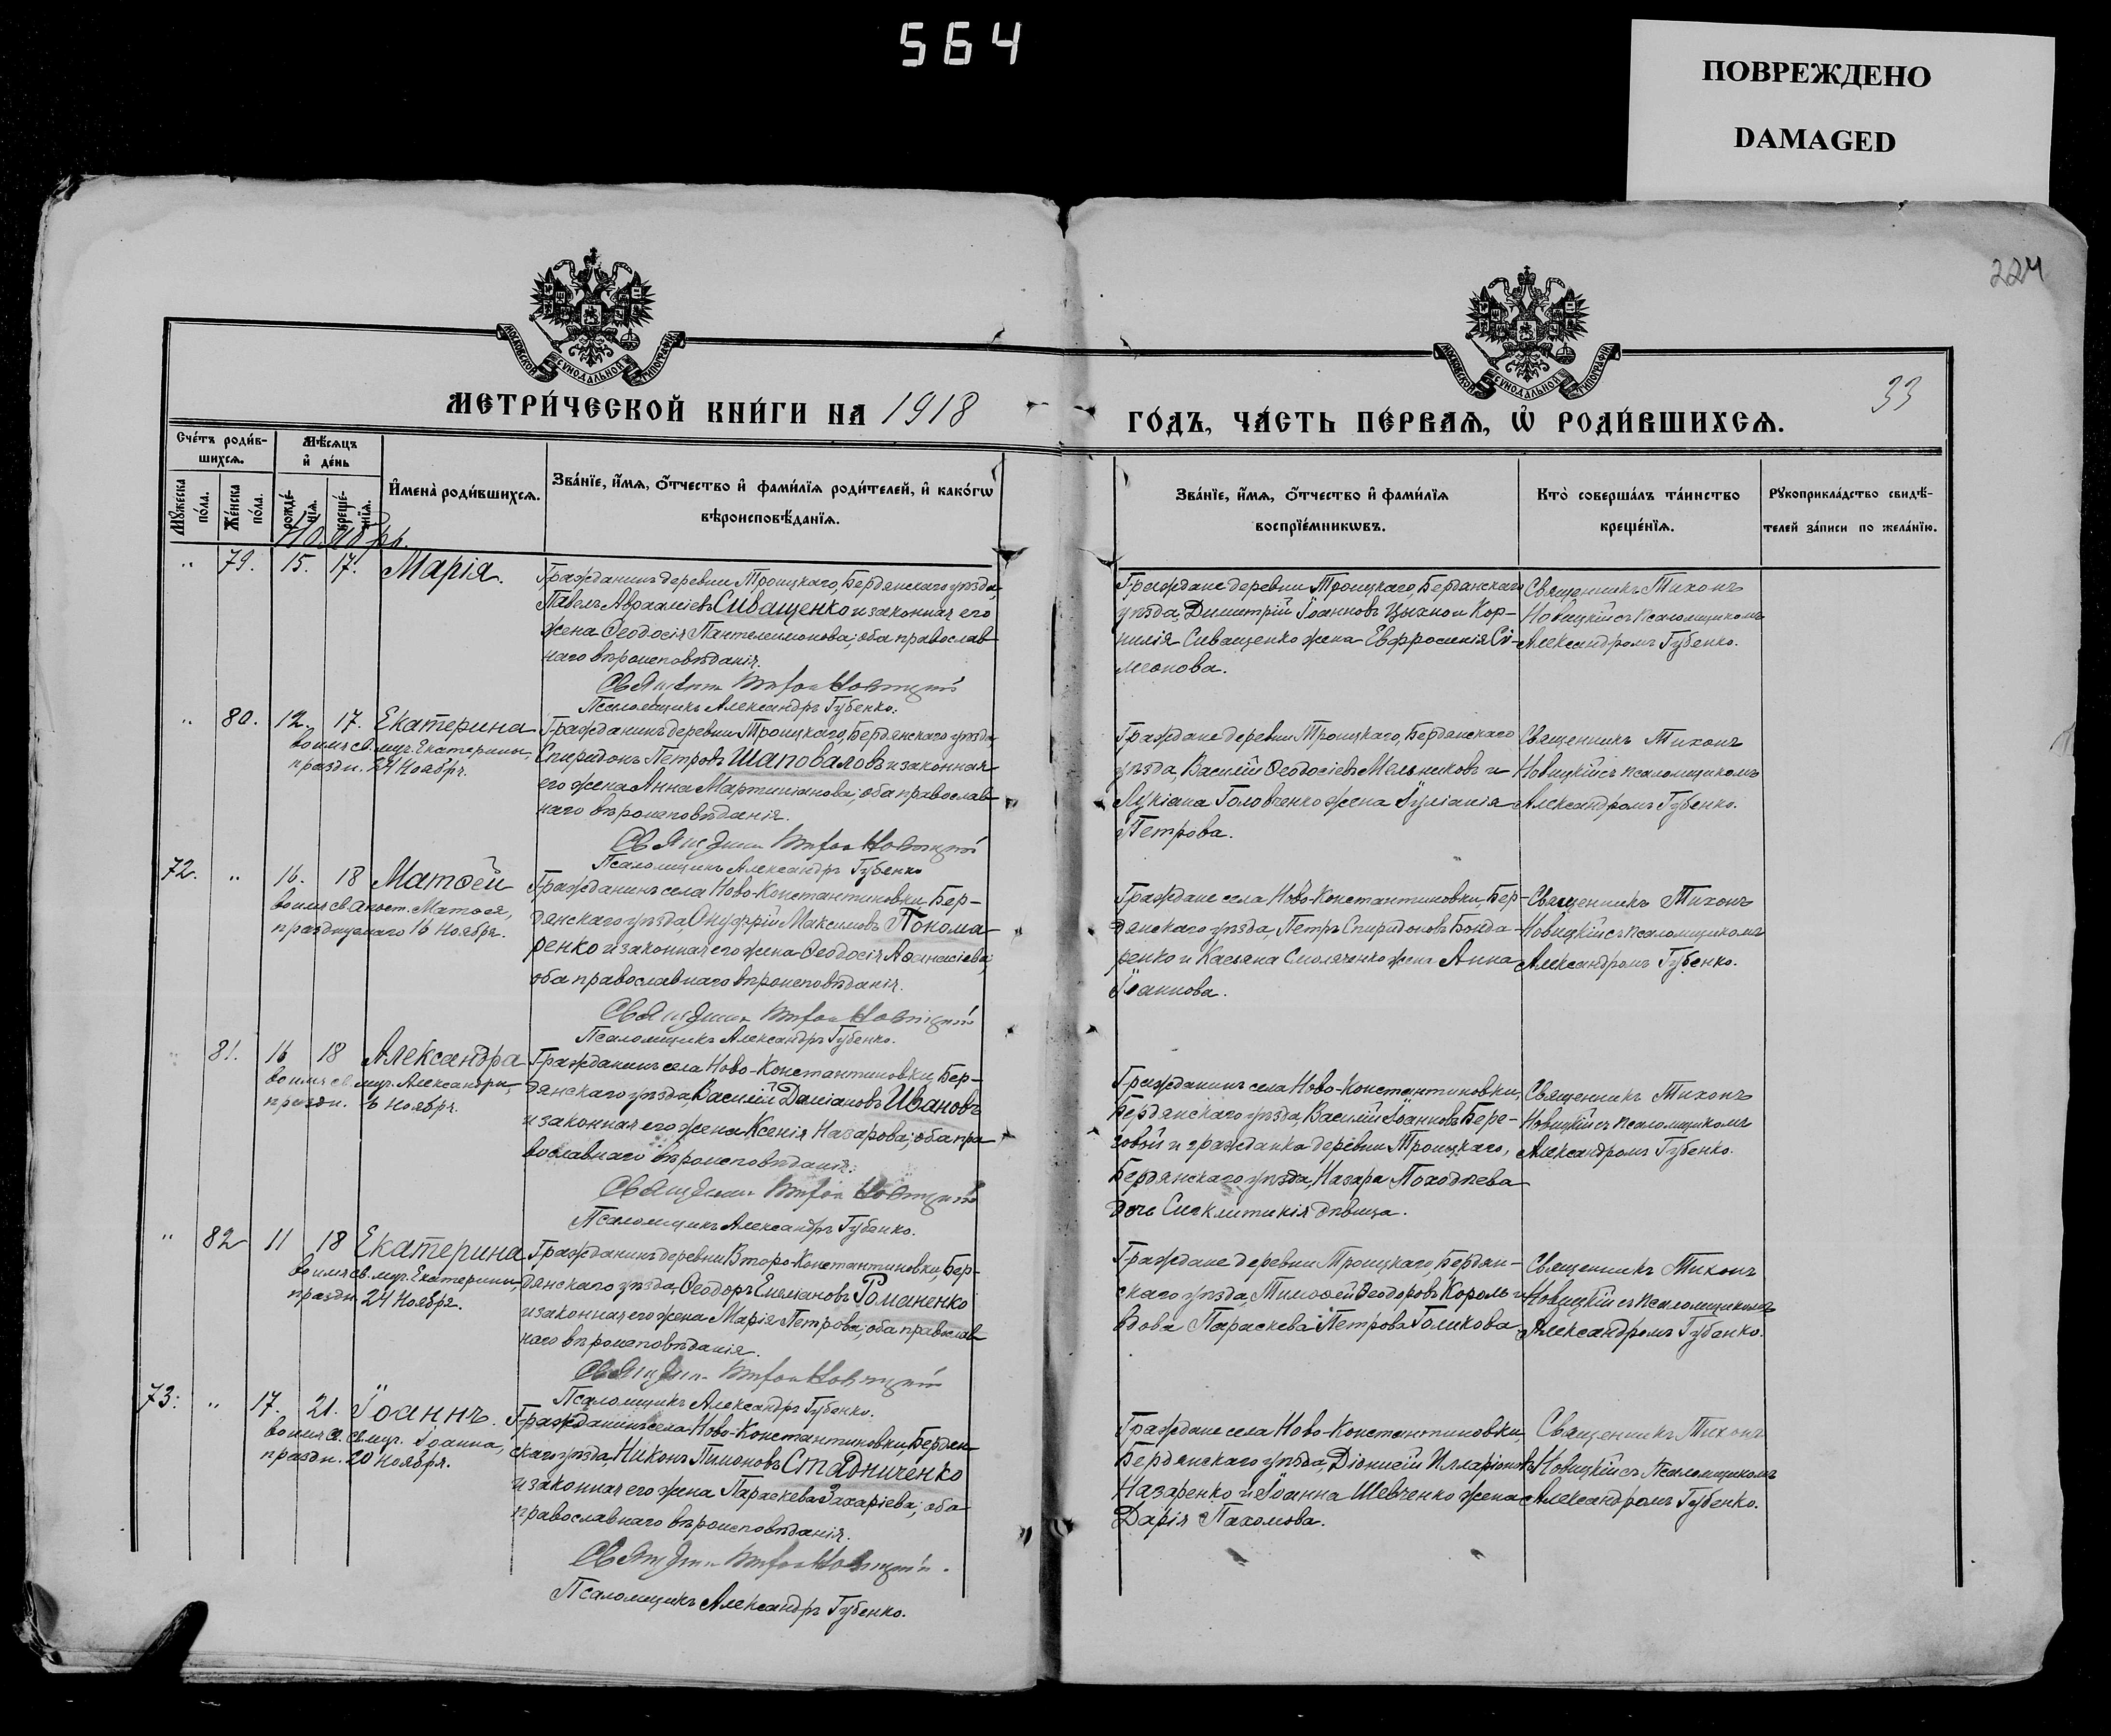 564
ПОВРЕЖДЕНО
DAMAGED
224
МОСКОВСКОЙ СѴНОДАЛЬНОЙ ТИПОГРАФІИ
МОСКОВСКОЙ СѴНОДАЛЬНОЙ ТИПОГРАФІИ
МЕТРИ́ЧЕСКОЙ КНИ́ГИ НА 1918
ГО́ДЪ, ЧА́СТЬ ПЕ́РВАѦ, Ѡ҆ РОДИ́ВШИХСѦ.
33
Сче́тъ роди́в-
шихсѧ.
Мѣ́сѧцъ
и҆ де́нь
И҆мена̀ роди́вшихсѧ.
Зва́нїе, и҆́мѧ, ѻ҆́тчество и҆ фами́лїѧ роди́телей, и҆ како́гѡ
вѣроисповѣ́данїѧ.
Мꙋ́жеска
по́ла.
Же́нска
по́ла.
рожде́-
нїѧ.
креще́-
нїѧ.
Зва́нїе, и҆́мѧ, ѻ҆́тчество и҆ фами́лїѧ
воспрїе́мникѡвъ.
Кто̀ соверша́лъ та́инство
креще́нїѧ.
Рꙋкоприкла́дство свидѣ́-
телей за́писи по жела́нїю.
Ноябрь.
" 79. 15. 17. Марія.
Гражданинъ деревни Троицкаго, Бердянскаго уѣзда,
Павелъ Авраамiевъ Сиващенко и законная его
жена Ѳеодосія Пантелеимонова; оба православ-
наго вѣроисповѣданія.
Священникъ Тихон Новицкій
Псаломщикъ Александръ Губенко.
Граждане деревни Троицкаго, Бердянскаго
уѣзда, Димитрій Іоанновъ Цыхно и Кор-
нилія Сиващенко жена Евфросинія Си-
меонова.
Священникъ Тихонъ
Новицкій съ псаломщикомъ
Александромъ Губенко.
" 80. 12. 17. Екатерина
во имя св. муч. Екатерины,
праздн. 24 Ноября.
Гражданинъ деревни Троицкаго, Бердянскаго уѣзда
Спиридонъ Петровъ Шаповаловъ и законная
его жена Анна Мартиніанова; оба православ-
наго вѣроисповѣданія.
Священник Тихон Новицкій
Псаломщикъ Александръ Губенко
Граждане деревни Троицкаго, Бердянскаго
уѣзда, Василій Ѳеодосіевъ Мельниковъ и
Лукіана Головченко жена Іуліанія
Петрова.
Священникъ Тихонъ
Новицкій съ псаломщикомъ
Александромъ Губенко.
72. " 16. 18 Матѳей
во имя св. Апост. Матѳея,
празднуемаго 16 Ноября.
Гражданинъ села Ново-Константиновки, Бер-
дянскаго уѣзда, Онуфрій Максимовъ Понома-
ренко и законная его жена Ѳеодосія Аѳанасіева;
оба православнаго вѣроисповѣданія.
Священник Тихон Новицкій
Псаломщикъ Александръ Губенко.
Граждане села Ново-Константиновки, Бер-
дянскаго уѣзда, Петръ Спиридоновъ Бонда-
ренко и Касіана Смоляченко жена Анна
Іоаннова.
Священникъ Тихонъ
Новицкій съ псаломщикомъ
Александромъ Губенко.
81. 16 18 Александра
во имя св. муч. Александры,
праздн. 6 Ноября.
Гражданинъ села Ново-Константиновки, Бер-
дянскаго уѣзда, Василій Даміановъ Ивановъ
и законная его жена Ксенія Назарова; оба пра-
вославнаго вѣроисповѣданія.
Священник Тихон Новицкій
Псаломщикъ Александръ Губенко.
Гражданинъ села Ново-Константиновки,
Бердянскаго уѣзда, Василій Іоанновъ Бере-
говой и гражданка деревни Троицкаго,
Бердянскаго уѣзда, Назара Походнева
дочь Сигклитикія дѣвица.
Священникъ Тихонъ
Новицкій съ псаломщикомъ
Александромъ Губенко.
" 82 11 18 Екатерина
во имя св. муч. Екатерины,
праздн. 24 Ноября.
Гражданинъ деревни Второ-Константиновки, Бер-
дянскаго уѣзда, Ѳеодоръ Романенко
и законная его жена Марія Петрова; оба православ-
наго вѣроисповѣданія.
Священник Тихон Новицкій
Псаломщикъ Александръ Губенко.
Граждане деревни Троицкаго, Бердян-
скаго уѣзда, Тимоѳей Ѳеодоровъ Король и
вдова Параскева Петрова Голикова
Священникъ Тихонъ
Новицкій съ псаломщикомъ
Александромъ Губенко.
73. " 17. 21. Іоаннъ.
во имя св. муч. Іоанна,
праздн. 20 Ноября.
Гражданинъ села Ново-Константиновки, Бердян-
скаго уѣзда, Никонъ Пимоновъ Стадниченко
и законная его жена Параскева Захаріева; оба
православнаго вѣроисповѣданія.
Священник Тихон Новицкій.
Псаломщикъ Александръ Губенко.
Граждане села Ново-Константиновки,
Бердянскаго уѣзда, Діонисій Илларіоновъ
Назаренко и Іоанна Шевченко жена
Дарія Пахомова.
Священникъ Тихонъ
Новицкій съ Псаломщикомъ
Александромъ Губенко.